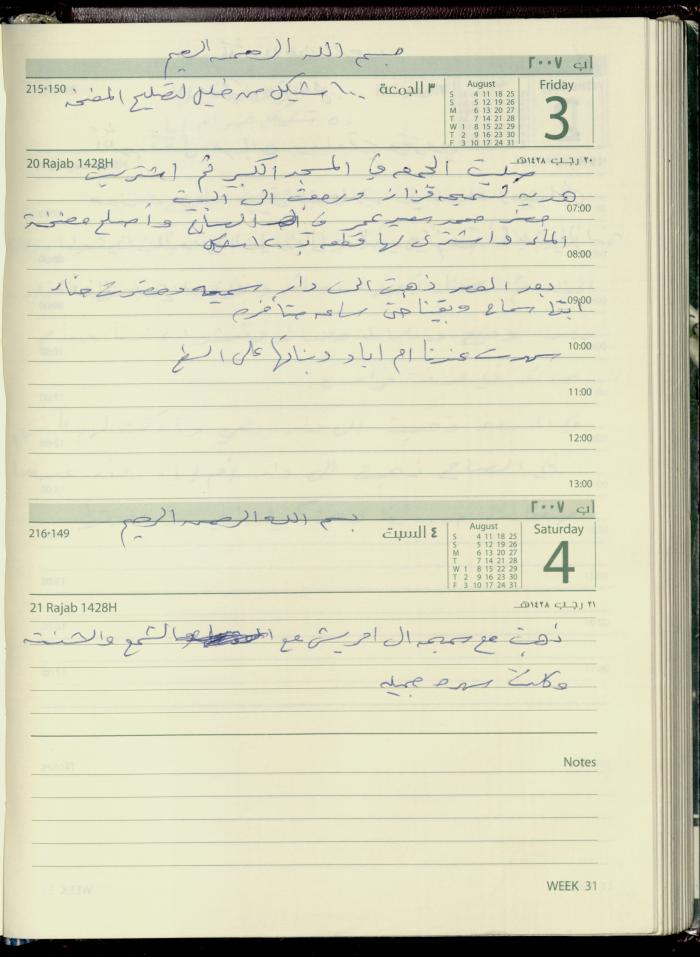 بسم الله الرحمن الرحيم
آب ٢٠٠٧
215-150
١٠٠ شيكل من خليل لتصليح المضخة
٣ الجمعة
August
S 4 11 18 25
S 5 12 19 26
M 6 13 20 27
T 7 14 21 28
W 1 8 15 22 29
T 2 9 16 23 30
F 3 10 17 24 31
Friday
3
20 Rajab 1428H
٢٠ رجب ١٤٢٨هـ
صليت الجمعه في المسجد الكبير ثم اشتريت
هديه لسميحه قزاز ورجعت الى البيت
07:00
حضر محمد سعيد عمر في الساعة وأصلح مضخة
الماء واشترى لها قطعه بـ ١٢٠ شيكل
08:00
بعد العصر ذهبت الى دار سميحه وحضرت حنان
09:00
ابنة سماح وبقينا حتى ساعه متأخره
10:00
سهرت عندنا ام اياد وبناتها على السطح
11:00
12:00
13:00
آب ٢٠٠٧
بسم الله الرحمن الرحيم
216-149
٤ السبت
August
S 4 11 18 25
S 5 12 19 26
M 6 13 20 27
T 7 14 21 28
W 1 8 15 22 29
T 2 9 16 23 30
F 3 10 17 24 31
Saturday
4
21 Rajab 1428H
٢١ رجب ١٤٢٨هـ
ذهبت مع سميحه ال مع الشمع والحنة
وكانت سهره جميله
Notes
WEEK 31